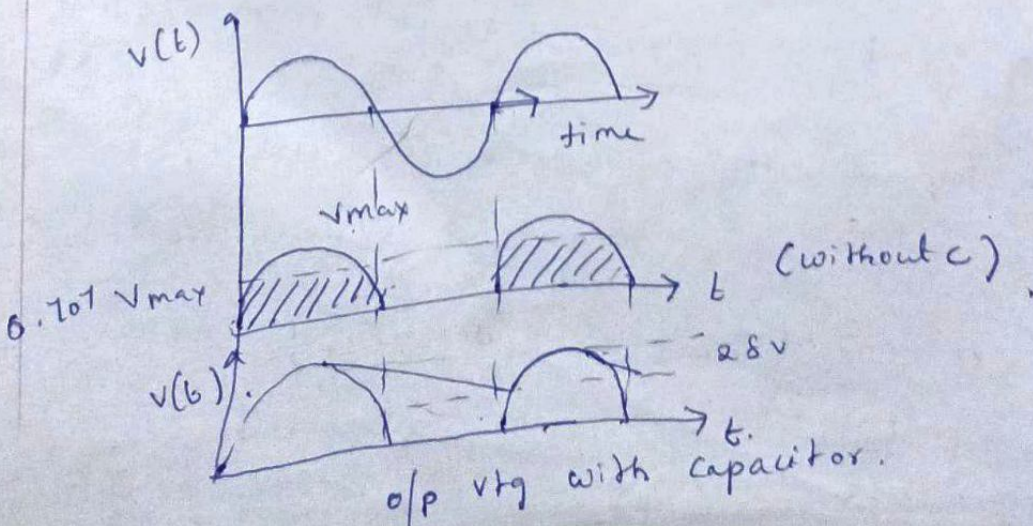 v(t)
time
Vmax
0.707 Vmax
t (without c)
2δv
v(t).
t.
o/p vtg with capacitor.